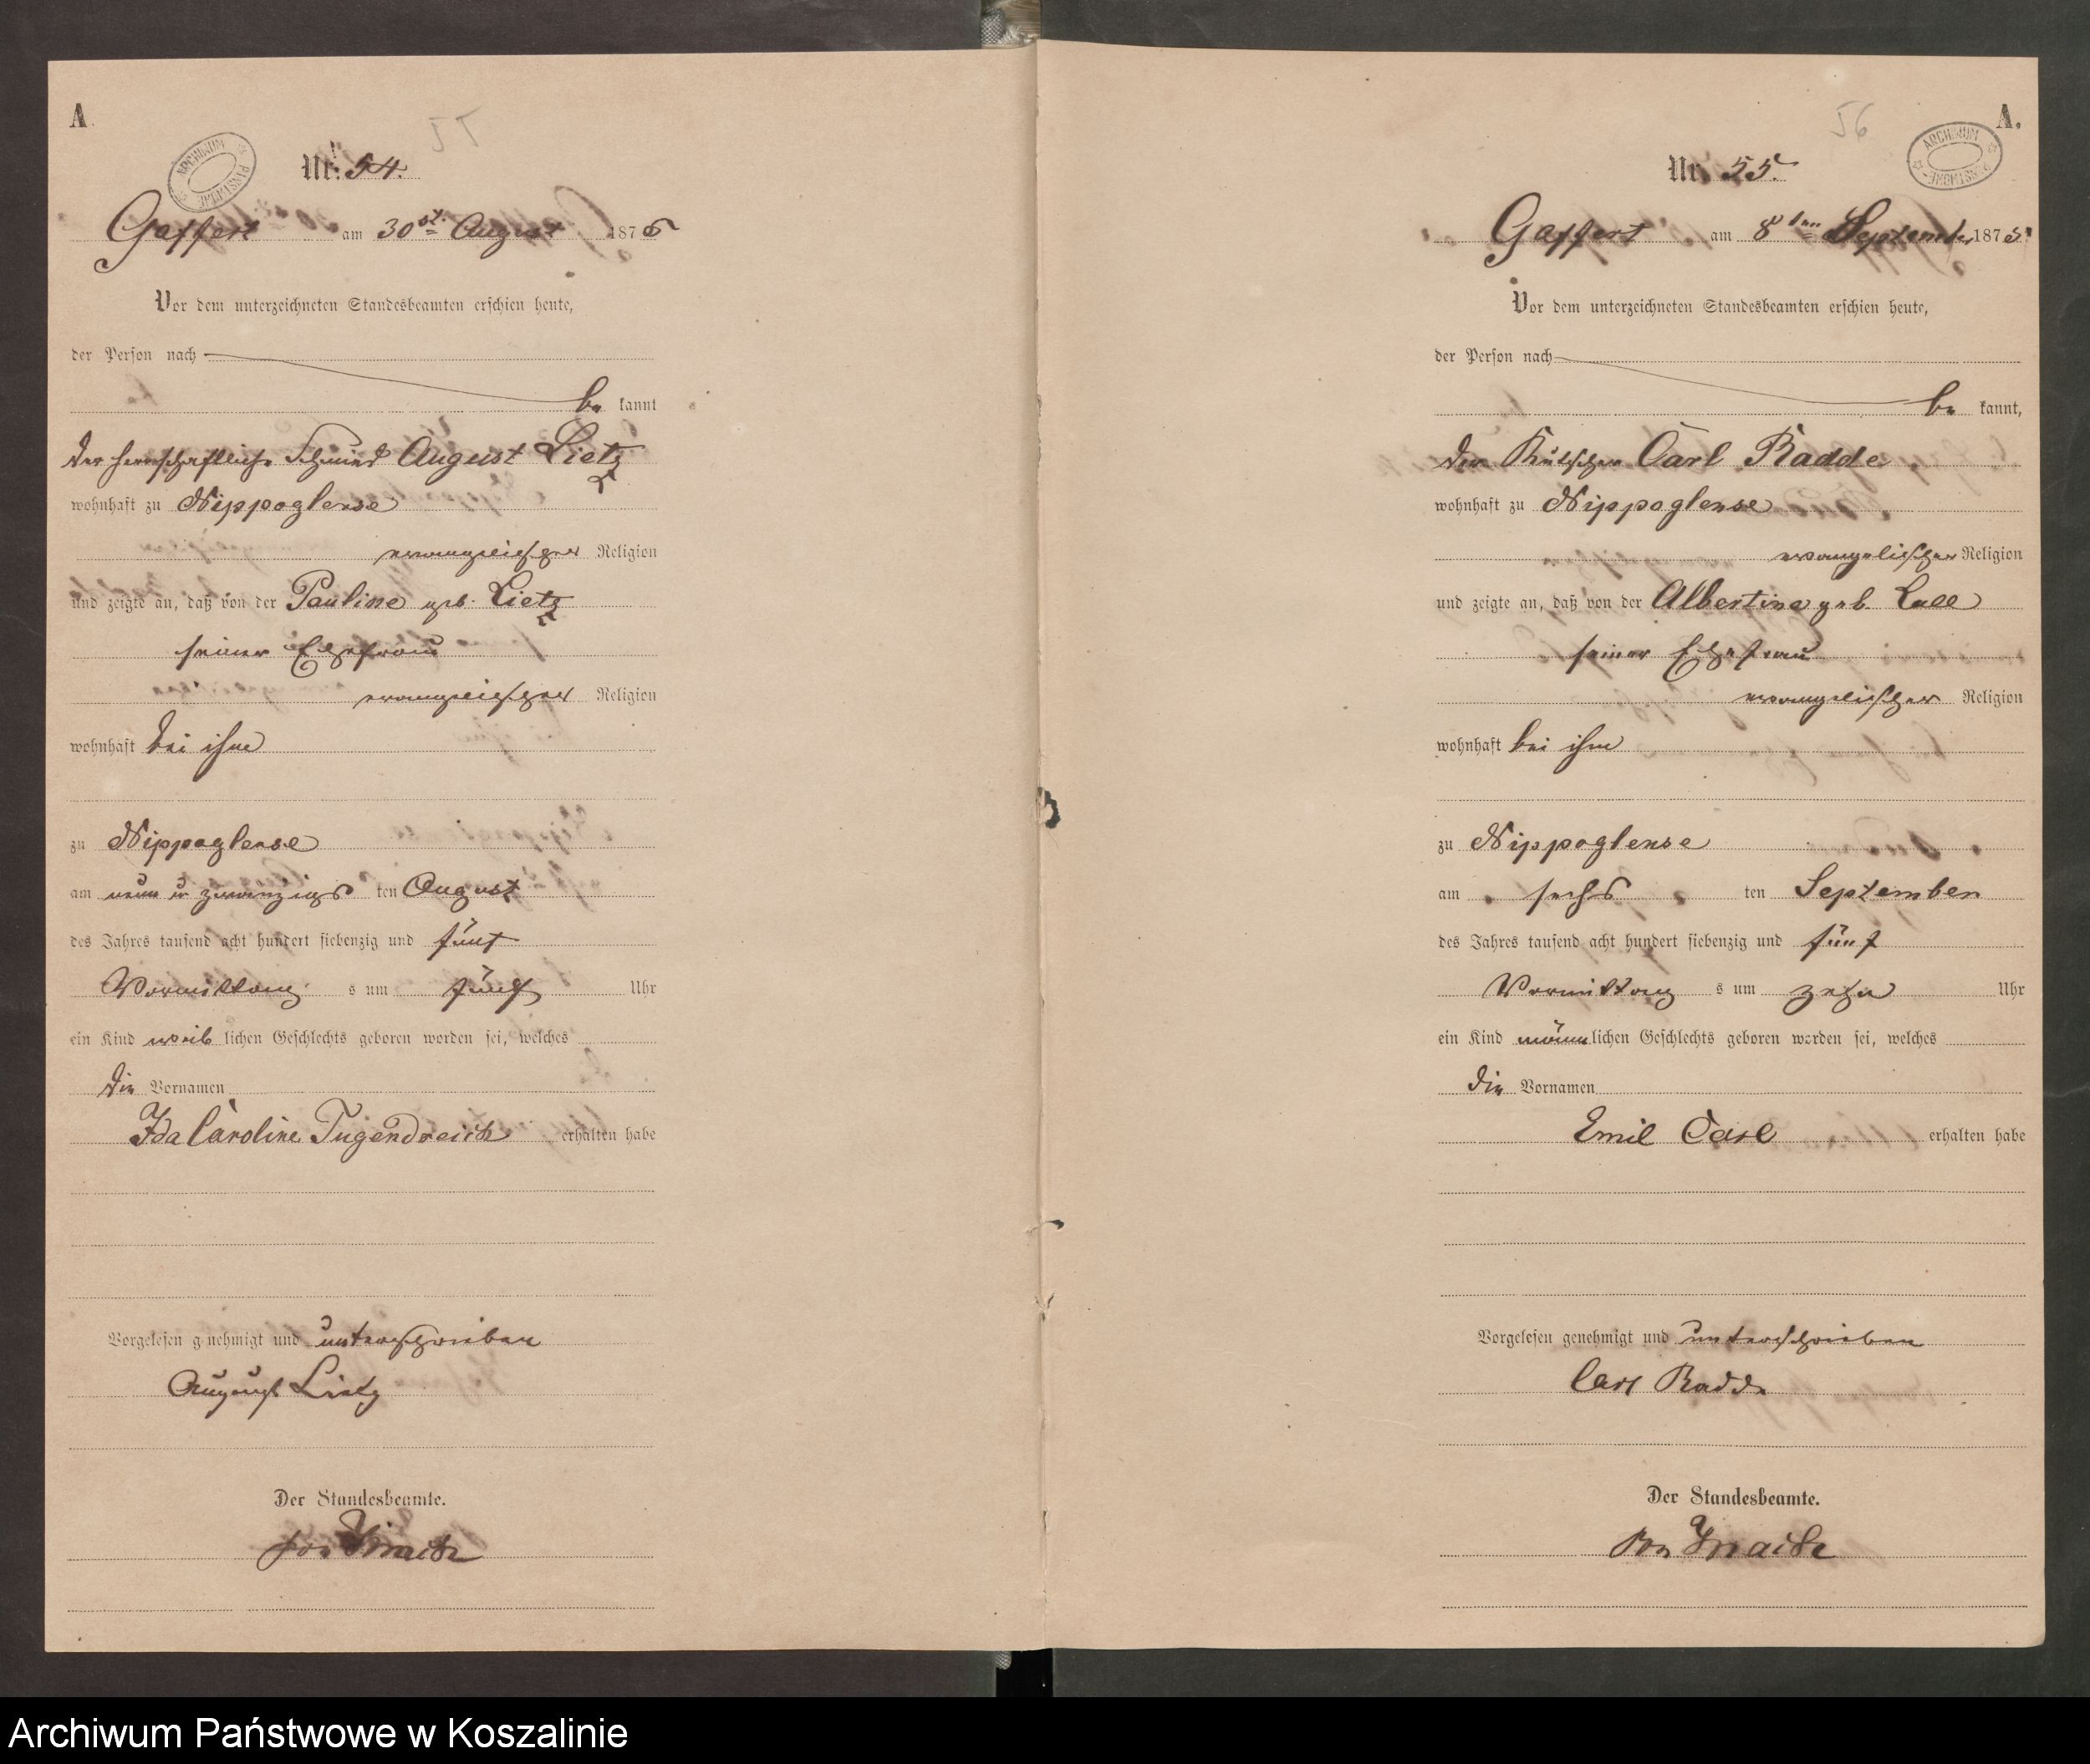 A
55
ARCHIWUM PAŃSTWOWE
Nr. 54.
Gaffert am 30st. August 1875
Vor dem unterzeichneten Standesbeamten erschien heute,
der Person nach
be kannt
der herrschaftliche Schmied August Lietz
wohnhaft zu Nippoglense
evangelischer Religion
und zeigte an, daß von der Pauline geb. Lietz
seiner Ehefrau
evangelischer Religion
wohnhaft bei ihm
zu Nippoglense
am neun u zwanzigs ten August
des Jahres tausend acht hundert siebenzig und fünf
Vormittag s um fünf Uhr
ein Kind weib lichen Geschlechts geboren worden sei, welches
die Vornamen
Ida Caroline Tugendreich erhalten habe
Vorgelesen genehmigt und unterschrieben
August Lietz
Der Standesbeamte.
von
A.
56
ARCHIWUM PAŃSTWOWE
Nr. 55.
Gaffert am 8ten September 1875
Vor dem unterzeichneten Standesbeamten erschien heute,
der Person nach
be kannt,
der Kutscher Carl Radde
wohnhaft zu Nippoglense
evangelischer Religion
und zeigte an, daß von der Albertine geb. Lall
seiner Ehefrau
evangelischer Religion
wohnhaft bei ihm
zu Nippoglense
am sechs ten September
des Jahres tausend acht hundert siebenzig und fünf
Vormittag s um zehn Uhr
ein Kind männ lichen Geschlechts geboren worden sei, welches
die Vornamen
Emil Carl erhalten habe
Vorgelesen genehmigt und unterschrieben
Carl Radde
Der Standesbeamte.
von
Archiwum Państwowe w Koszalinie